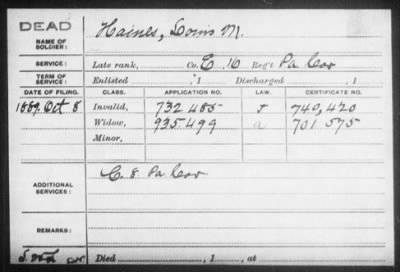 DEAD
NAME OF SOLDIER: Haines, Louis M.
SERVICE: Late rank, Co. E. 16 Reg't Pa Cav
TERM OF SERVICE: Enlisted , 1 Discharged , 1
DATE OF FILING. CLASS. APPLICATION NO. LAW. CERTIFICATE NO.
1889. Oct 8 Invalid, 732 485 J 740,420
Widow, 935499 a 701 575
Minor,
ADDITIONAL SERVICES: C. 8 Pa Cav
REMARKS:
Died , 1 , at